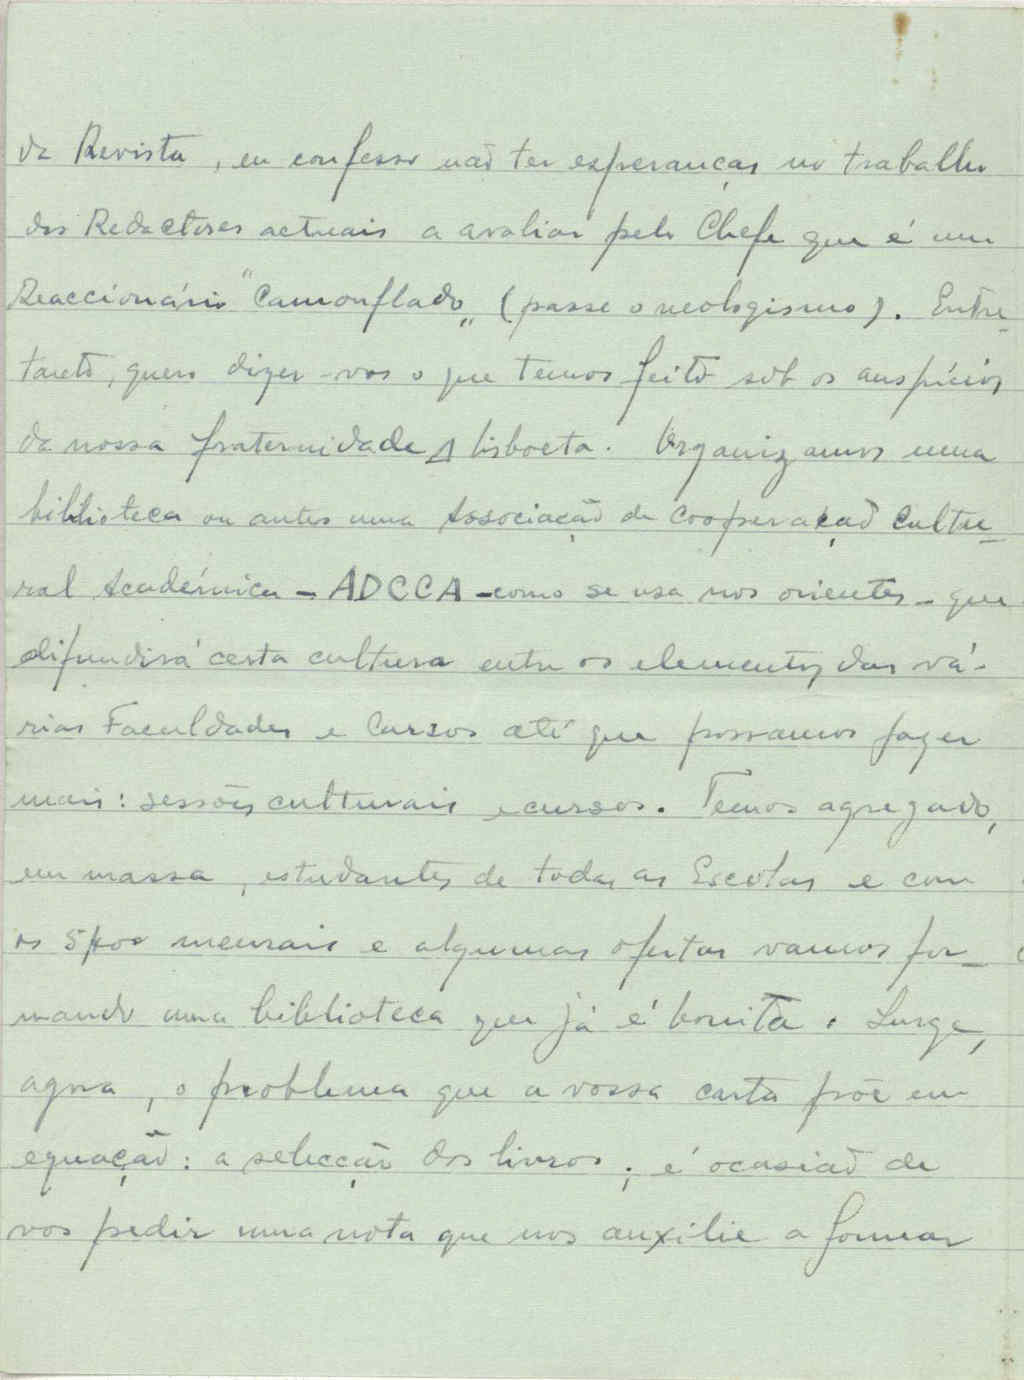 da Revista, eu confesso não ter esperanças no trabalho
dos Redactores actuais a avaliar pelo Chefe que é um
Reaccionário "Camouflado" (passe o neologismo). Entre-
tanto, quero dizer-vos o que temos feito sob os auspícios
da nossa fraternidade lisboeta. Organizamos uma
biblioteca ou antes uma Associação de Cooperação Cultu-
ral Académica - ADCCA - como se usa nos orientes - que
difundirá certa cultura entre os elementos das vá-
rias Faculdades e Cursos até que possamos fazer
mais: sessões culturais e cursos. Temos agregado,
em massa, estudantes de todas as Escolas e com
os 5$00 mensais e algumas ofertas vamos for-
mando uma biblioteca que já é bonita. Surge,
agora, o problema que a vossa carta põe em
equação: a selecção dos livros; é ocasião de
vos pedir uma nota que nos auxilie a formar